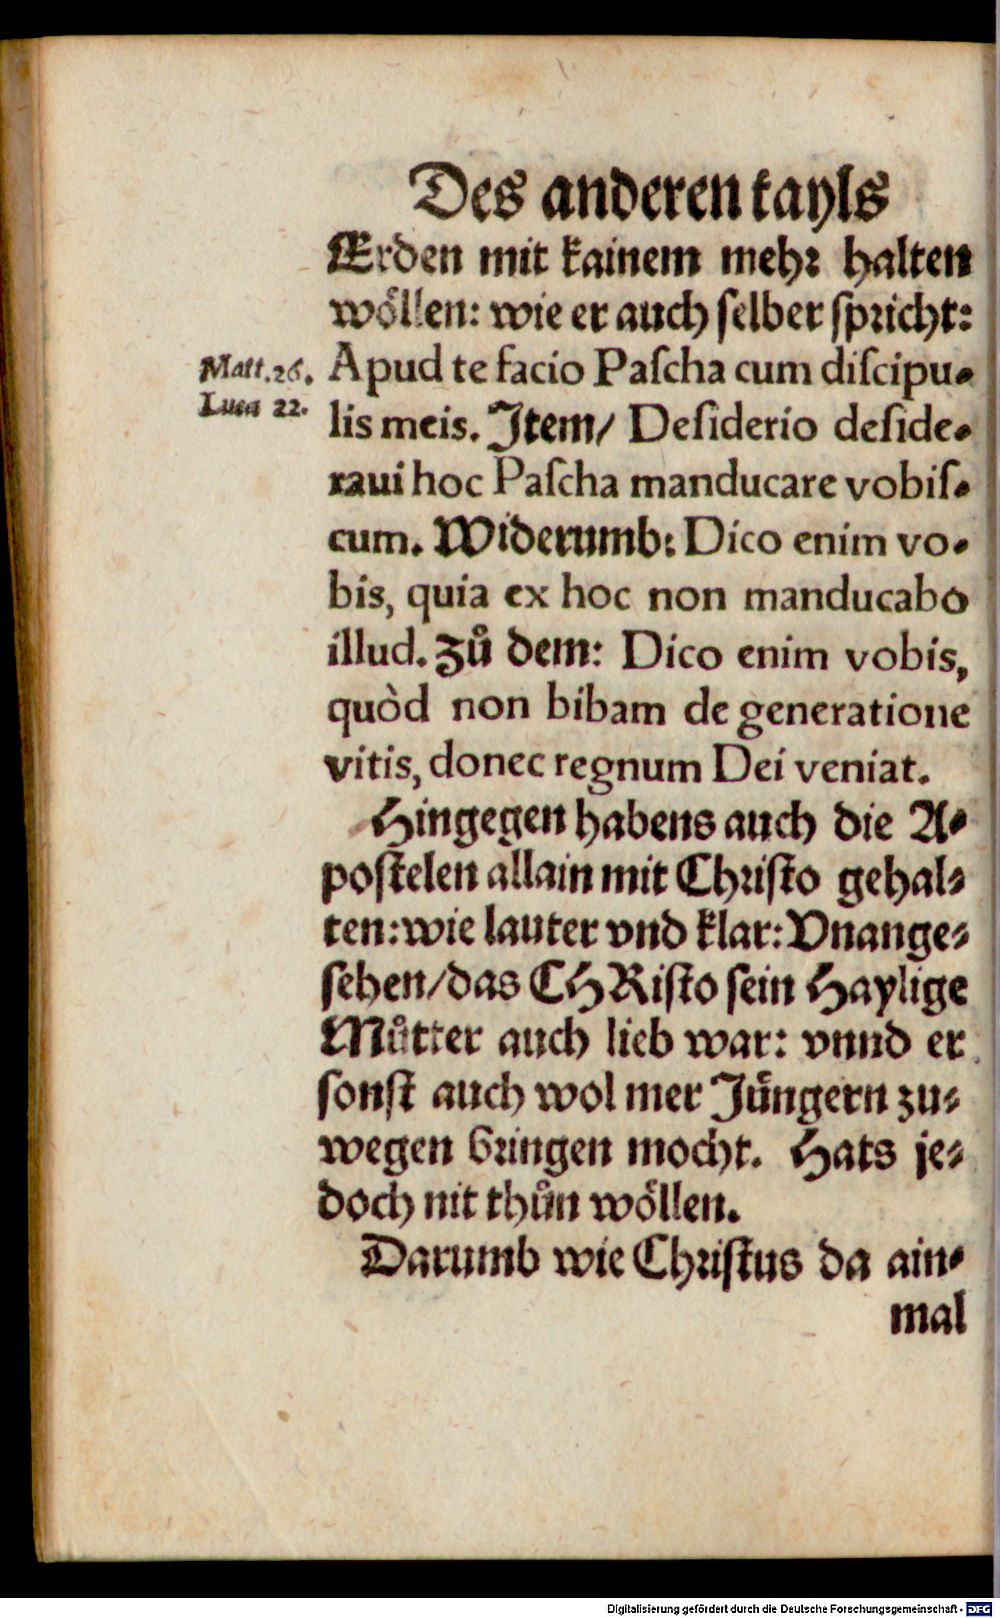 Des anderen tayls
Erden mit kainem mehr halten
wöllen: wie er auch selber spricht:
Matt.26.
Luca 22.
Apud te facio Pascha cum discipu-
lis meis. Item/ Desiderio deside-
raui hoc Pascha manducare vobis-
cum. Widerumb: Dico enim vo-
bis, quia ex hoc non manducabo
illud. Zů dem: Dico enim vobis,
quòd non bibam de generatione
vitis, donec regnum Dei veniat.
Hingegen habens auch die A-
postelen allain mit Christo gehal-
ten: wie lauter vnd klar: Vnange-
sehen/das CHRisto sein Haylige
Můtter auch lieb war: vnnd er
sonst auch wol mer Jüngern zu-
wegen bringen mocht. Hats je-
doch nit thůn wöllen.
Darumb wie Christus da ain-
mal
Digitalisierung gefördert durch die Deutsche Forschungsgemeinschaft - DFG